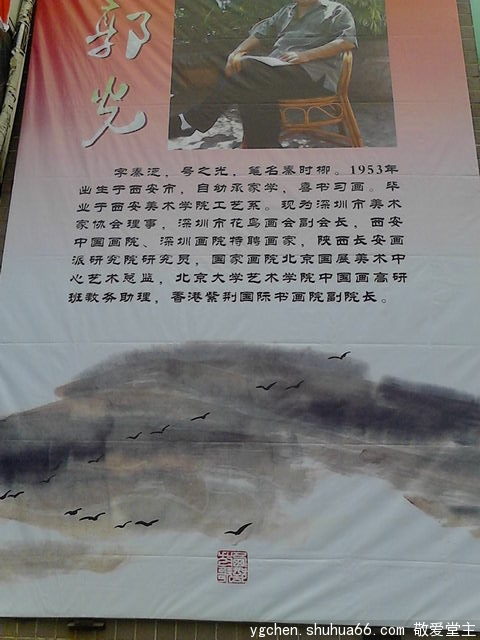 郭光
字秦泛，号之光，笔名秦时柳。1953年
出生于西安市，自幼承家学，喜书习画。毕
业于西安美术学院工艺系。现为深圳市美术
家协会理事，深圳市花鸟画会副会长，西安
中国画院、深圳画院特聘画家，陕西长安画
派研究院研究员，国家画院北京国展美术中
心艺术总监，北京大学艺术学院中国画高研
班教务助理，香港紫荆国际书画院副院长。
ygchen.shuhua66.com 敬爱堂主